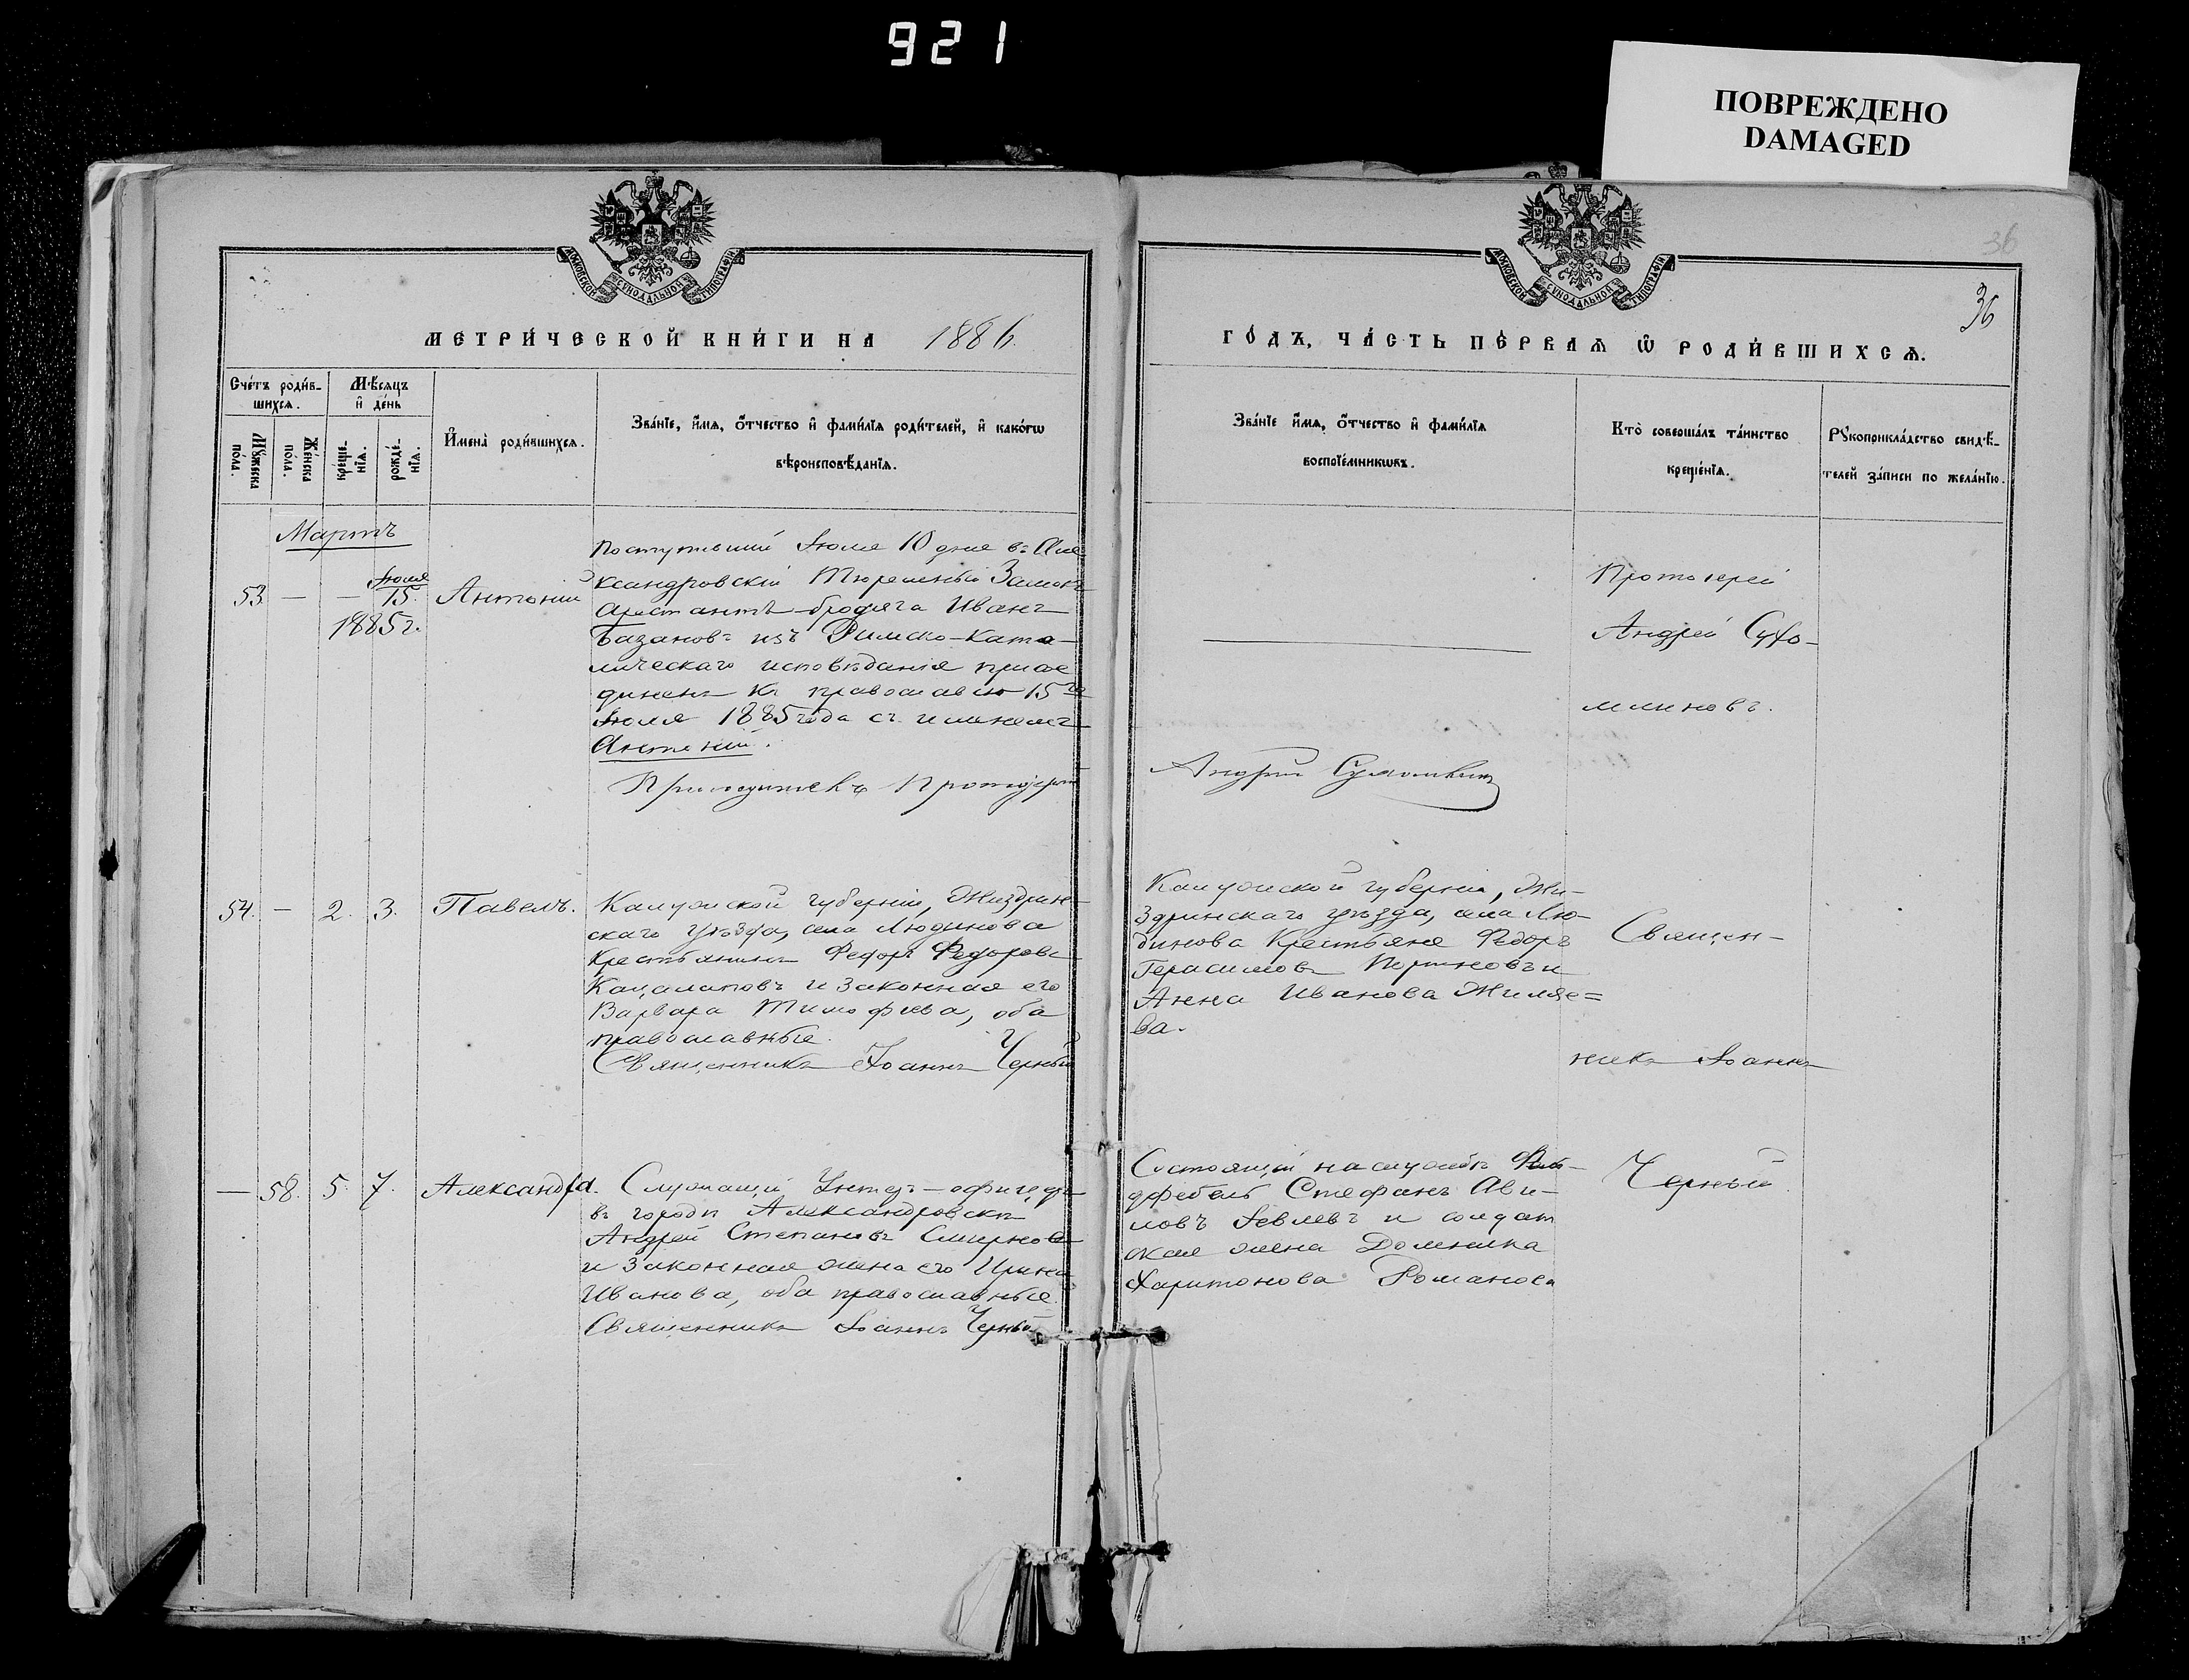 921
ПОВРЕЖДЕНО
DAMAGED
МОСКОВСКОЙ СУНОДАЛЬНОЙ ТИПОГРАФІИ
МОСКОВСКОЙ СУНОДАЛЬНОЙ ТИПОГРАФІИ
36
36
МЕТРИ́ЧЕСКОЙ КНИ́ГИ НА 1886.
ГО́ДЪ, ЧА́СТЬ ПЕ́РВАѦ Ѿ РОДИ́ВШИХСѦ.
Сче́тъ роди́в-
шихсѧ.
Мѣ́сѧцъ
и҆ де́нь
Мꙋ́жеска
по́ла.
Же́нска
по́ла.
креще́-
нїѧ.
рожде́-
нїѧ.
И҆мена̀ роди́вшихсѧ.
Зва́нїе, и҆́мѧ, ѻ҆́тчество и҆ фами́лїѧ роди́телей, и҆ како́гѡ
вѣроисповѣ́данїѧ.
Зва́нїе и҆́мѧ, ѻ҆́тчество и҆ фами́лїѧ
воспрїе́мникѡвъ.
Кто̀ соверша́лъ та́инство
креще́нїѧ.
Рꙋкоприкла́дство свидѣ́-
телей за́писи по жела́нїю.
Мартъ
53. — — Іюля 15. 1885 г. Антоній
Поступившій Іюля 10 дня въ Але-
ксандровскій Тюремный Замокъ
Арестантъ-бродяга Иванъ
Базановъ изъ Римско-Като-
лическаго исповѣданія присое
диненъ къ православію 15 го
Іюля 1885 года съ именемъ
Антоній.
Протоіерей
Андрей Сухо-
млиновъ.
Протоіерей
Андрей Сухомлинов
54. — 2. 3. Павелъ.
Калужской губерніи, Жиздрин-
скаго уѣзда, села Людинова
Крестьянинъ Федоръ Федоровъ
и законная его
Варвара Тимофѣева, оба
православные.
Священникъ Іоаннъ Черный
Калужской губерніи, Жи-
здринскаго уѣзда, села Лю-
динова Крестьяне Федоръ
Герасимовъ и
Анна Иванова Жиляе=
ва.
Священ-
никъ Іоаннъ
Черный
— 58. 5. 7. Александра.
Служащій Унтеръ-офицеръ
въ городѣ Александровскѣ
Андрей Степановъ Смирновъ
и законная жена его Ирина
Иванова, оба православные.
Священникъ Іоаннъ Черный
Состоящій на службѣ Фель-
дфебель Стефанъ Ави-
ловъ Іевлевъ и солдат
ская жена Доменика
Харитонова Романова